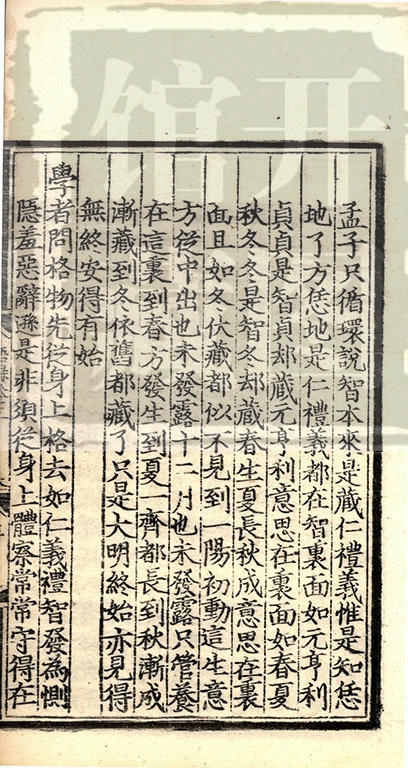 孟子只循環說智本來是藏仁禮義惟是知恁
地了方恁地是仁禮義都在智裏面如元亨利
貞貞是智貞却藏元亨利意思在裏面如春夏
秋冬冬是智冬却藏春生夏長秋成意思在裏
面且如冬伏藏都似不見到一陽初動這生意
方從中出也未發露十二月也未發露只管養
在這裏到春方發生到夏一齊都長到秋漸成
漸藏到冬依舊都藏了只是大明終始亦見得
無終安得有始
學者問格物先從身上格去如仁義禮智發為惻
隱羞惡辭遜是非須從身上體察常常守得在
开
馆